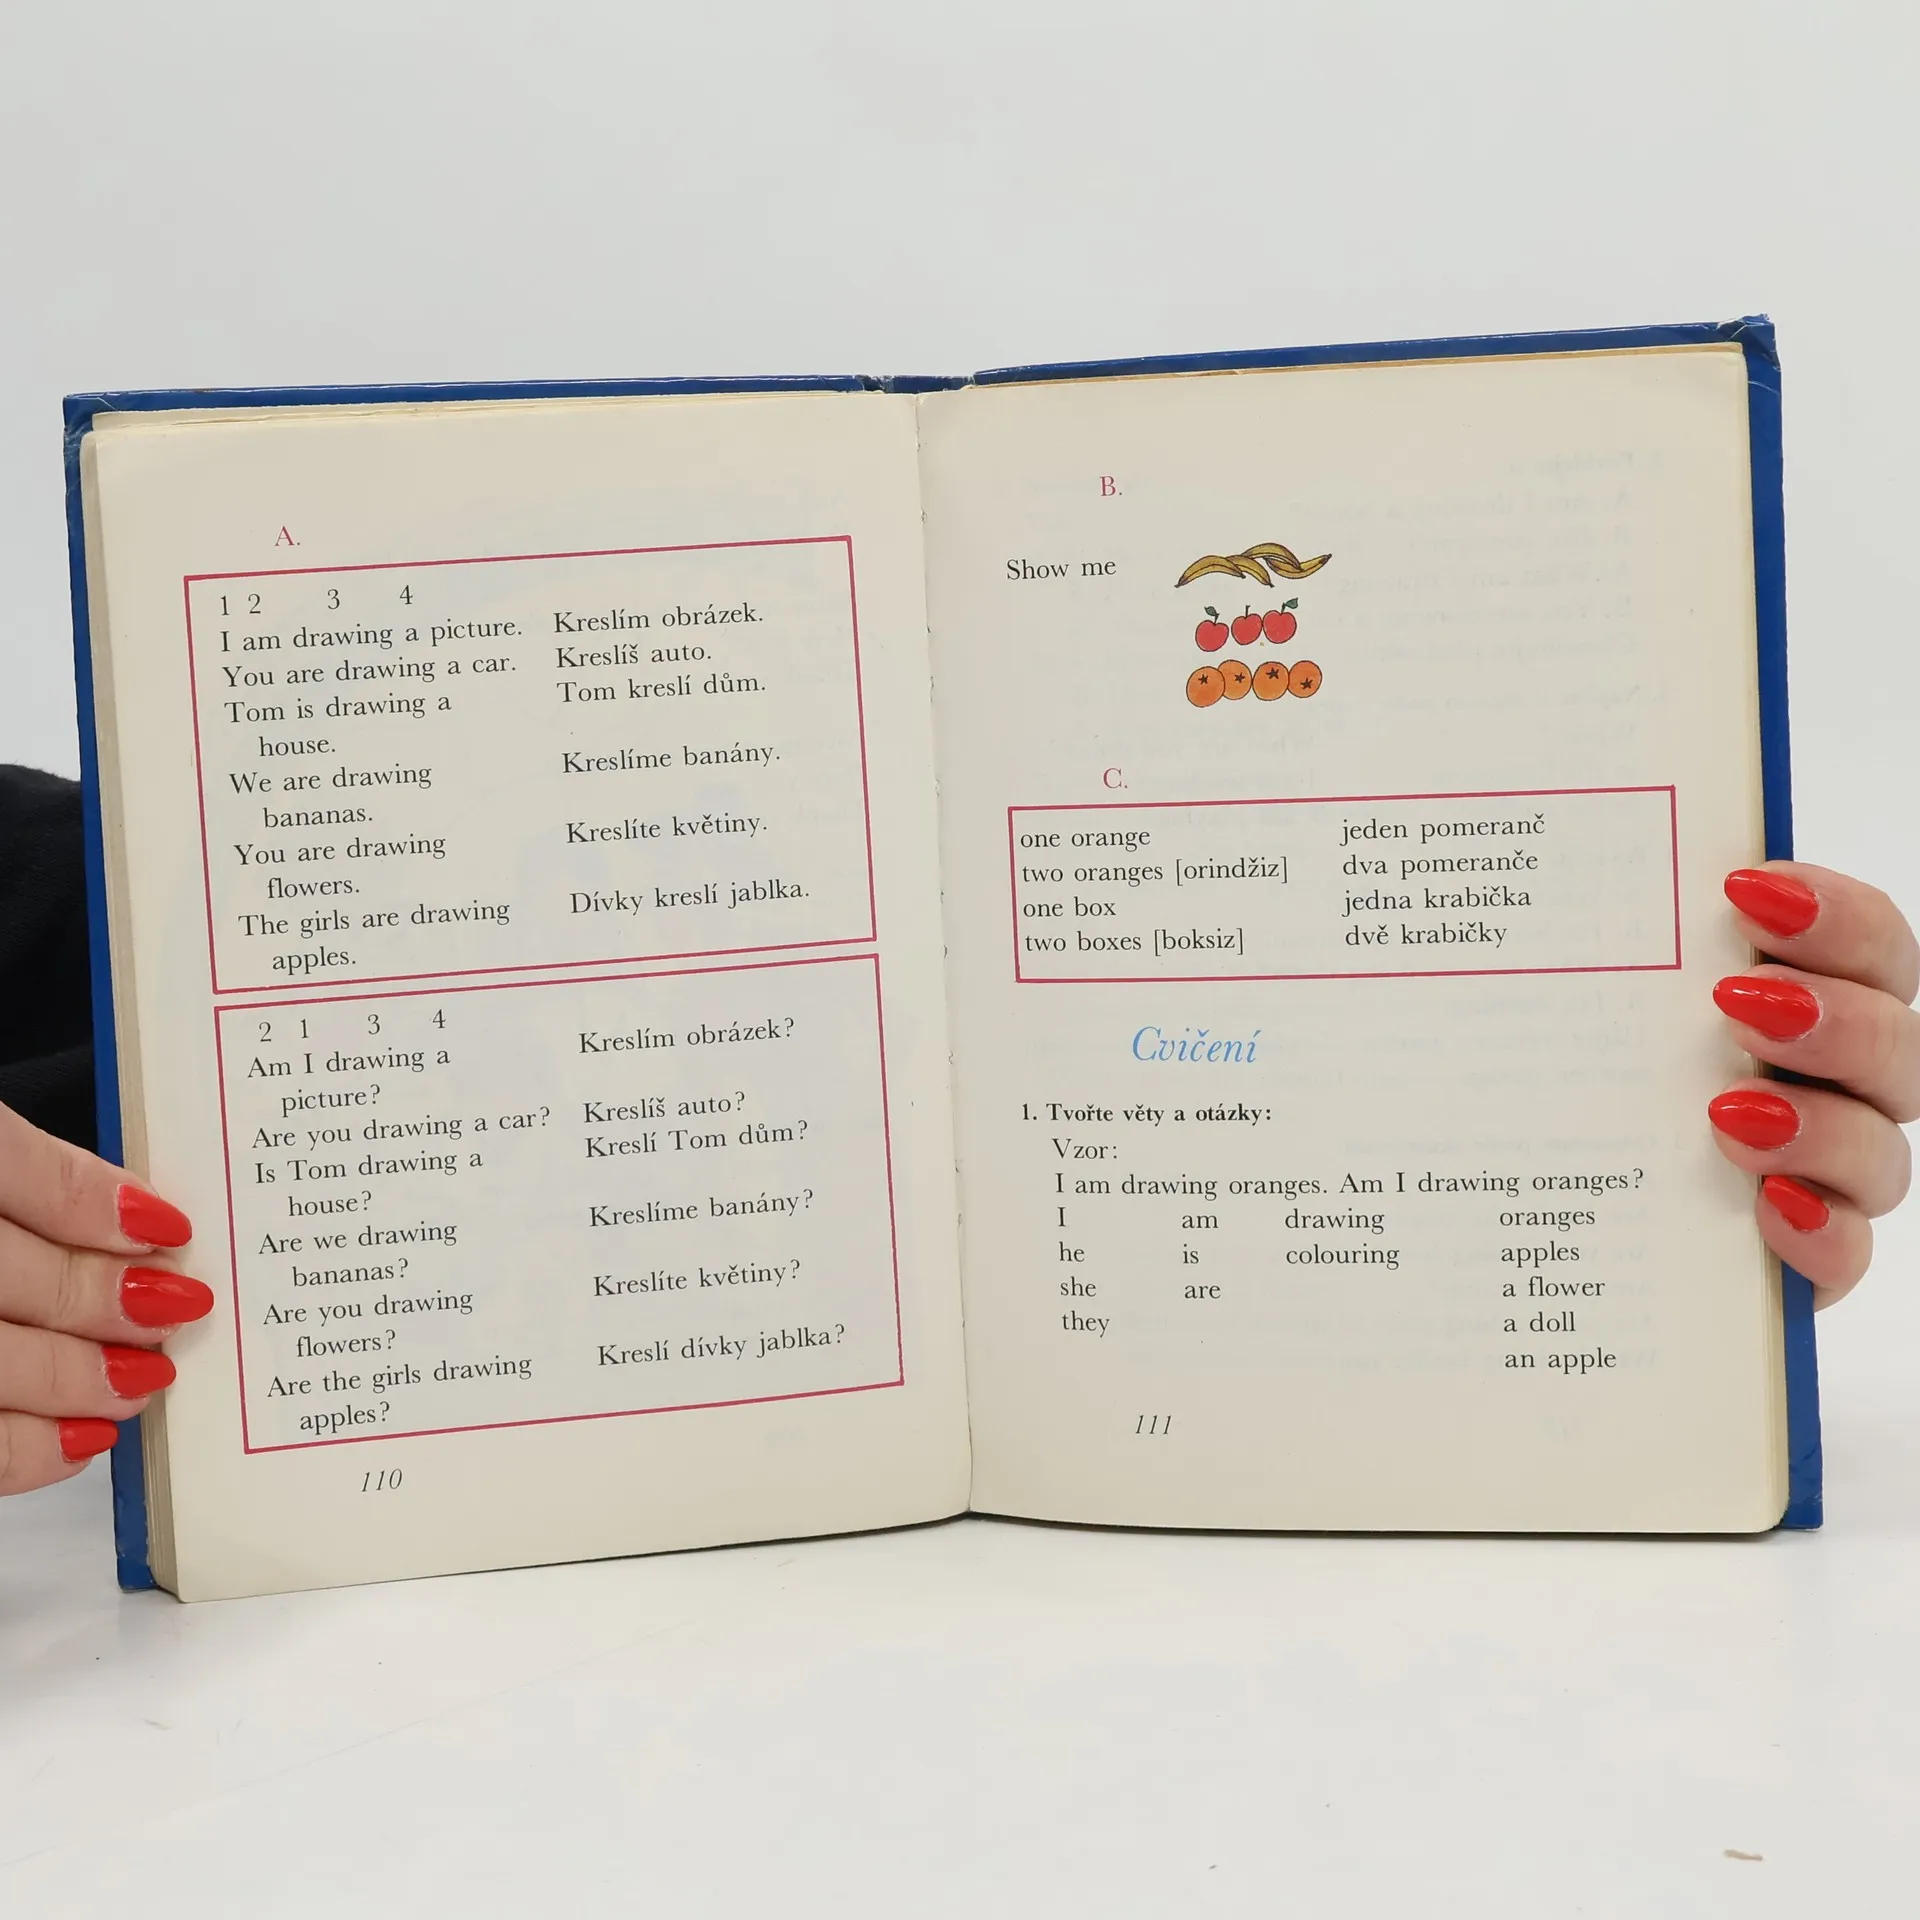 A.
1 2 3 4
I am drawing a picture. Kreslím obrázek.
You are drawing a car. Kreslíš auto.
Tom is drawing a Tom kreslí dům.
house.
We are drawing Kreslíme banány.
bananas.
You are drawing Kreslíte květiny.
flowers.
The girls are drawing Dívky kreslí jablka.
apples.
2 1 3 4
Am I drawing a Kreslím obrázek?
picture?
Are you drawing a car? Kreslíš auto?
Is Tom drawing a Kreslí Tom dům?
house?
Are we drawing Kreslíme banány?
bananas?
Are you drawing Kreslíte květiny?
flowers?
Are the girls drawing Kreslí dívky jablka?
apples?
110
B.
Show me
C.
one orange jeden pomeranč
two oranges [orindžiz] dva pomeranče
one box jedna krabička
two boxes [boksiz] dvě krabičky
Cvičení
1. Tvořte věty a otázky:
Vzor:
I am drawing oranges. Am I drawing oranges?
I am drawing oranges
he is colouring apples
she are a flower
they a doll
an apple
111